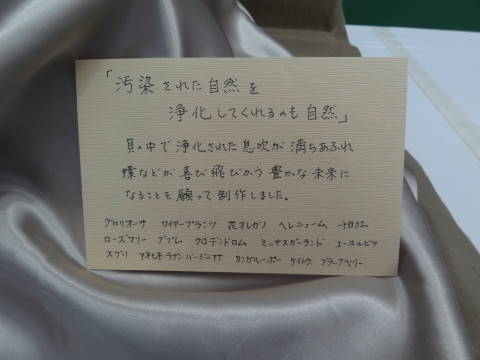 「汚染された自然を
浄化してくれるのも自然」
貝の中で浄化された息吹が満ちあふれ
蝶などが喜び飛びかう豊かな未来に
なることを願って制作しました。
グロリオーサ ワイヤープランツ 花オレガノ ヘレニューム
ローズマリー クロデンドロム ミッサスガーランド ユーホルビア
スグリ カンガルーポー ケイトウ ブラックベリー